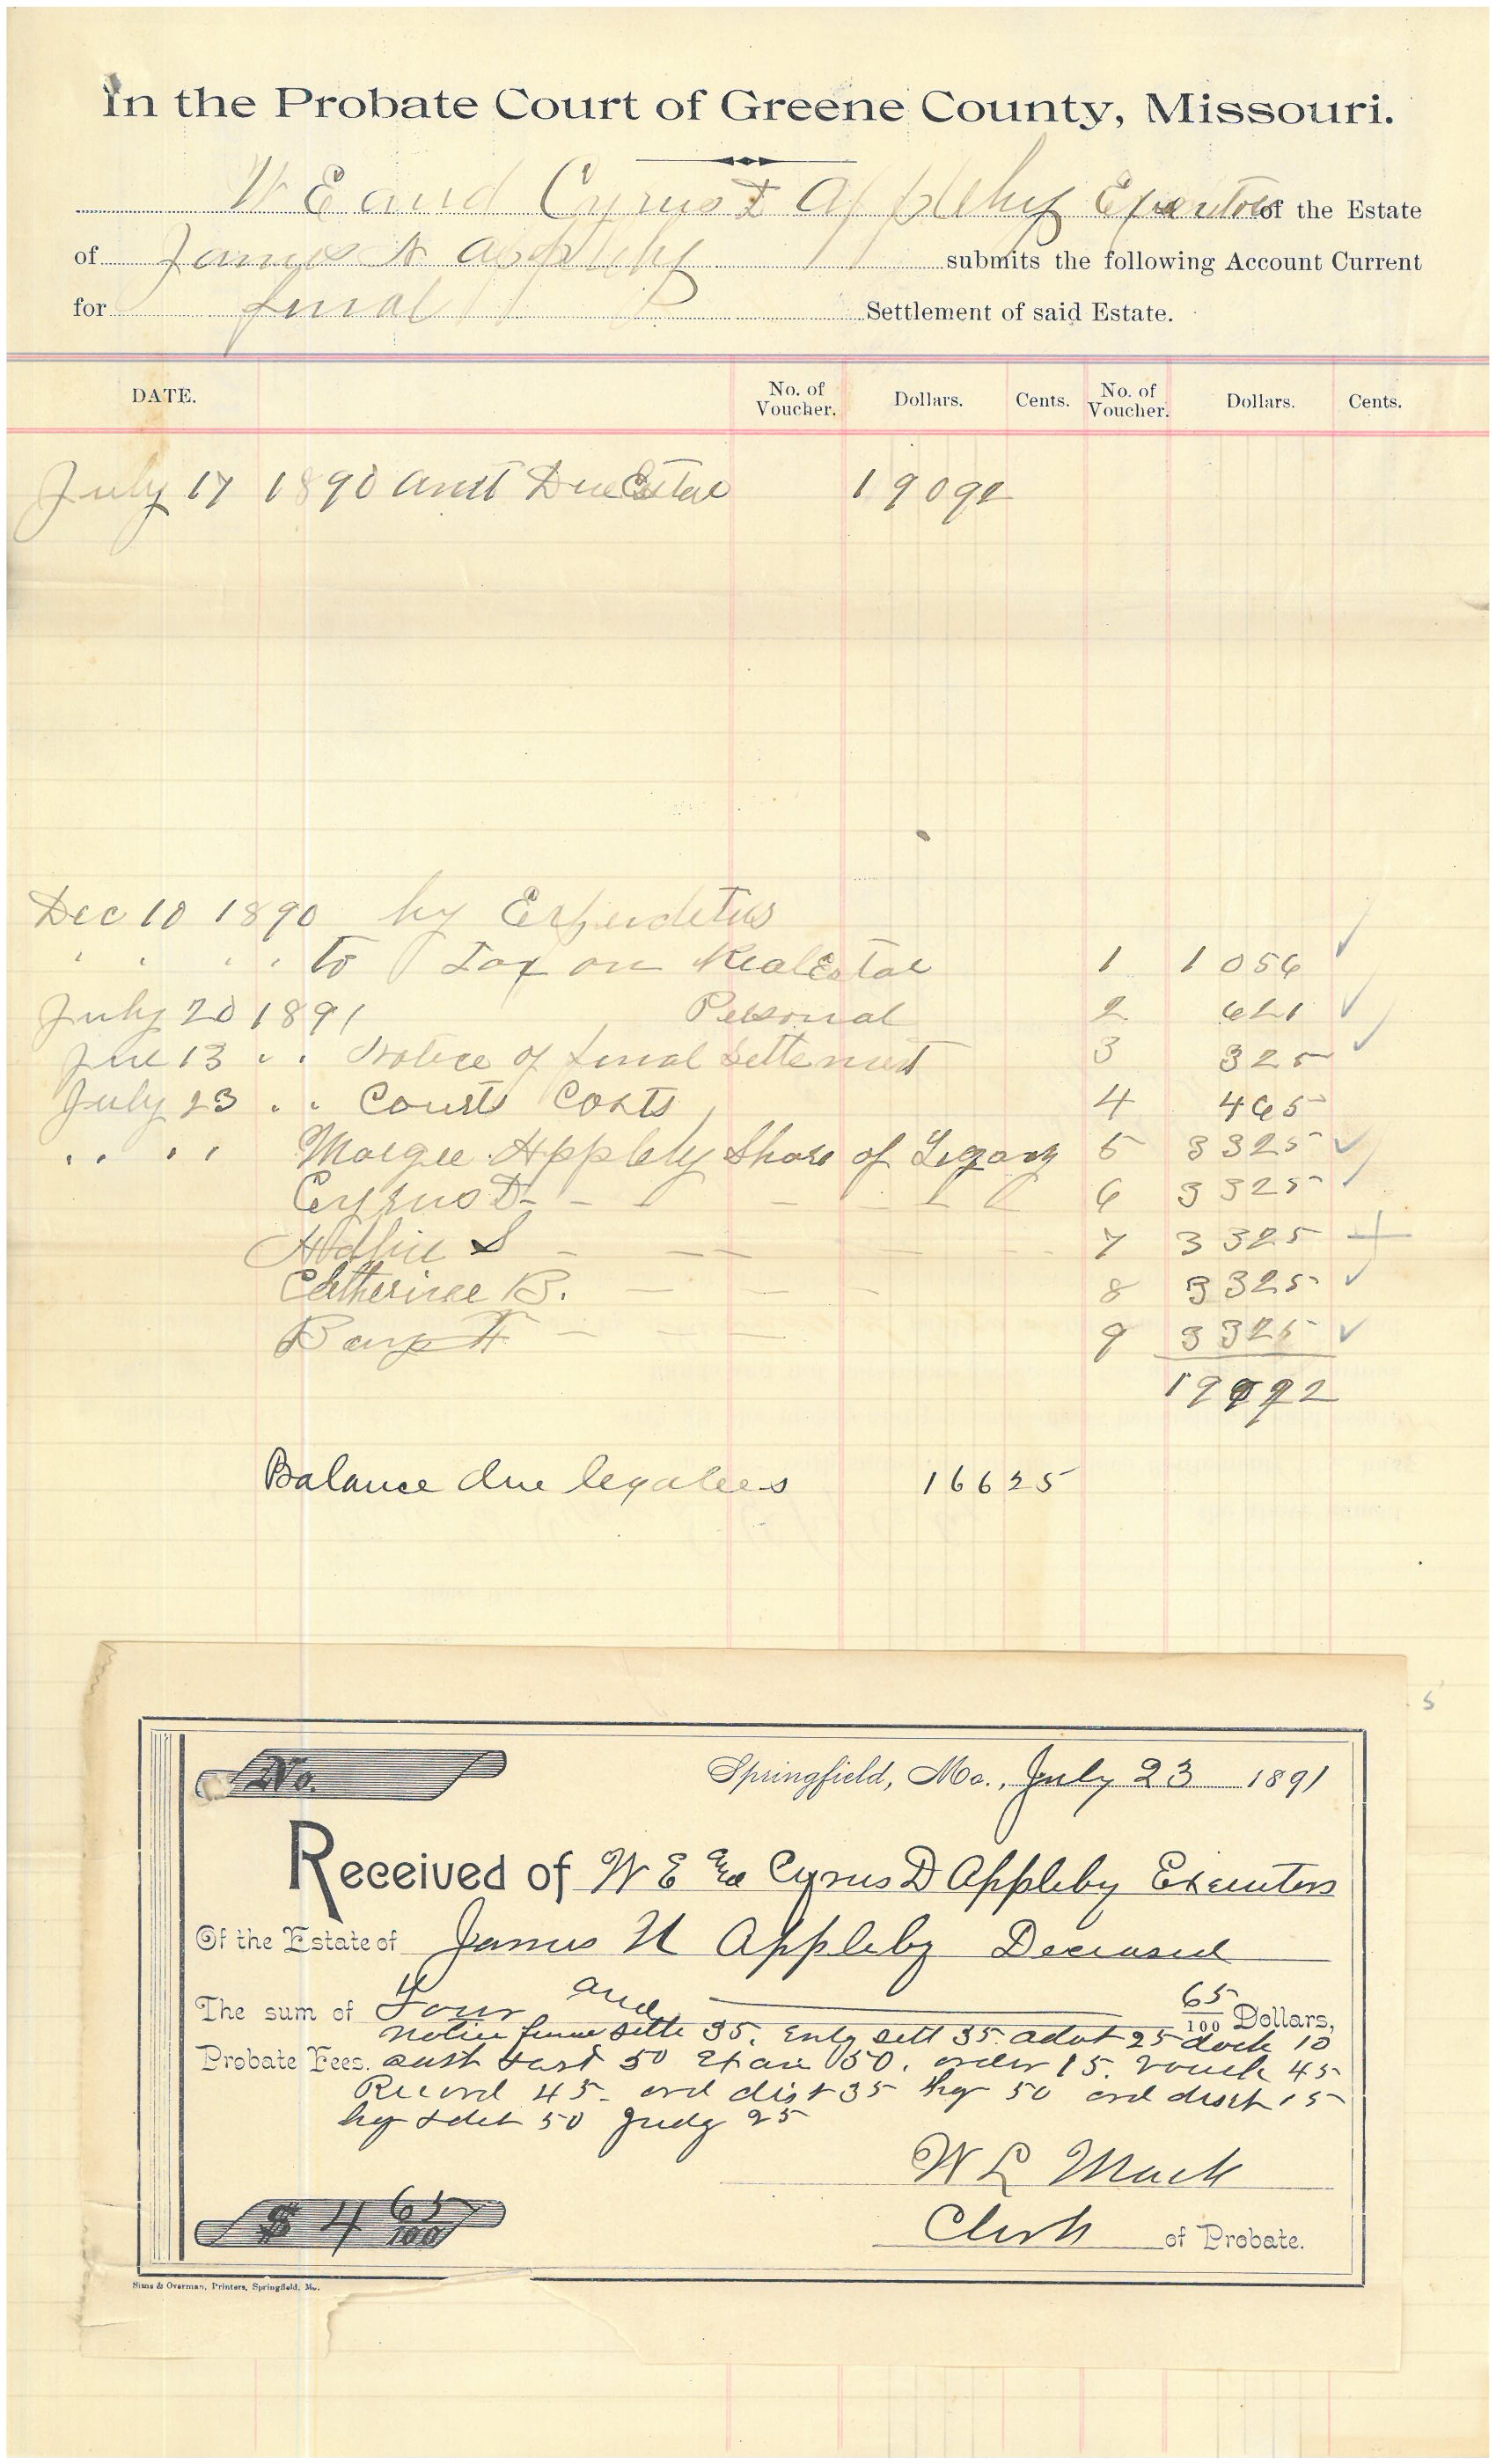 In the Probate Court of Greene County, Missouri.
W E and Cyrus D Appleby Executors of the Estate
of James N Appleby submits the following Account Current
for final Settlement of said Estate.
DATE. No. of Voucher. Dollars. Cents. No. of Voucher. Dollars. Cents.
July 17 1890 amt Due Estate 190 92
Dec 10 1890 by
" " " " to Tax on Real Estate 1 10 56
July 20 1891 Personal 2 6 21
13 " " Notice of final Settlement 3 3 25
July 23 " " Courts Costs 4 4 65
" " " " Appleby Share of Legacy 5 33 25
Cyrus D - - - - - 6 33 25
S - - - - 7 33 25
Catherine B. - - - 8 33 25
F - - - 9 33 25
190 92
Balance due legatees 166 25
No.
Springfield, Mo., July 23 1891
Received of W E and Cyrus D Appleby Executors
Of the Estate of James N Appleby Deceased
The sum of Four and 65/100 Dollars,
notice final settle 35. Entg sett 35. 25 dock 10
Probate Fees. 50 50. order 15. vouch 45
Record 45. ord dist 35 50 ord disch 15
50 Judg 25
W L Mack
Clerk of Probate.
$ 4 65/100
Sims & Overman, Printers, Springfield, Mo.